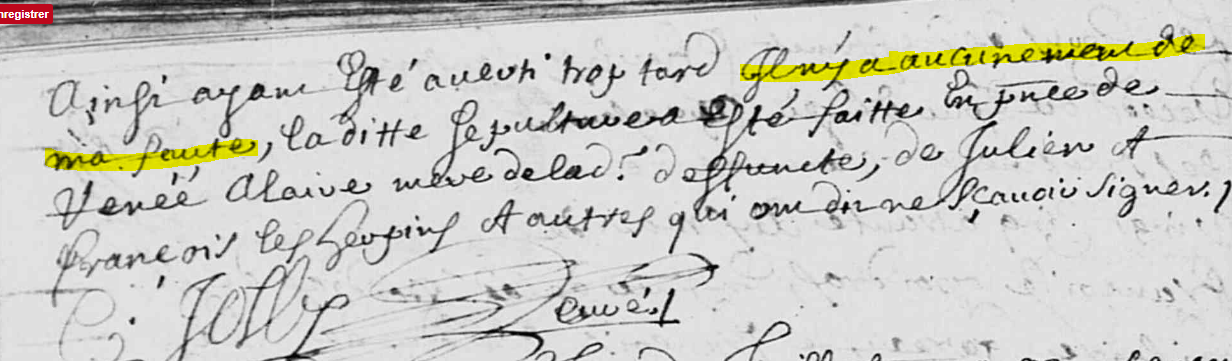 nregistrer
Ainsi ayant Esté averti trop tard Il n'y a aucunement de
ma faute, la ditte sepulture a Esté faitte En pnce de
Renéé Alaire mere de lad.^e deffuncte, de Julien et
François les et autres qui ont dit ne sçavoir signer.
Jolly